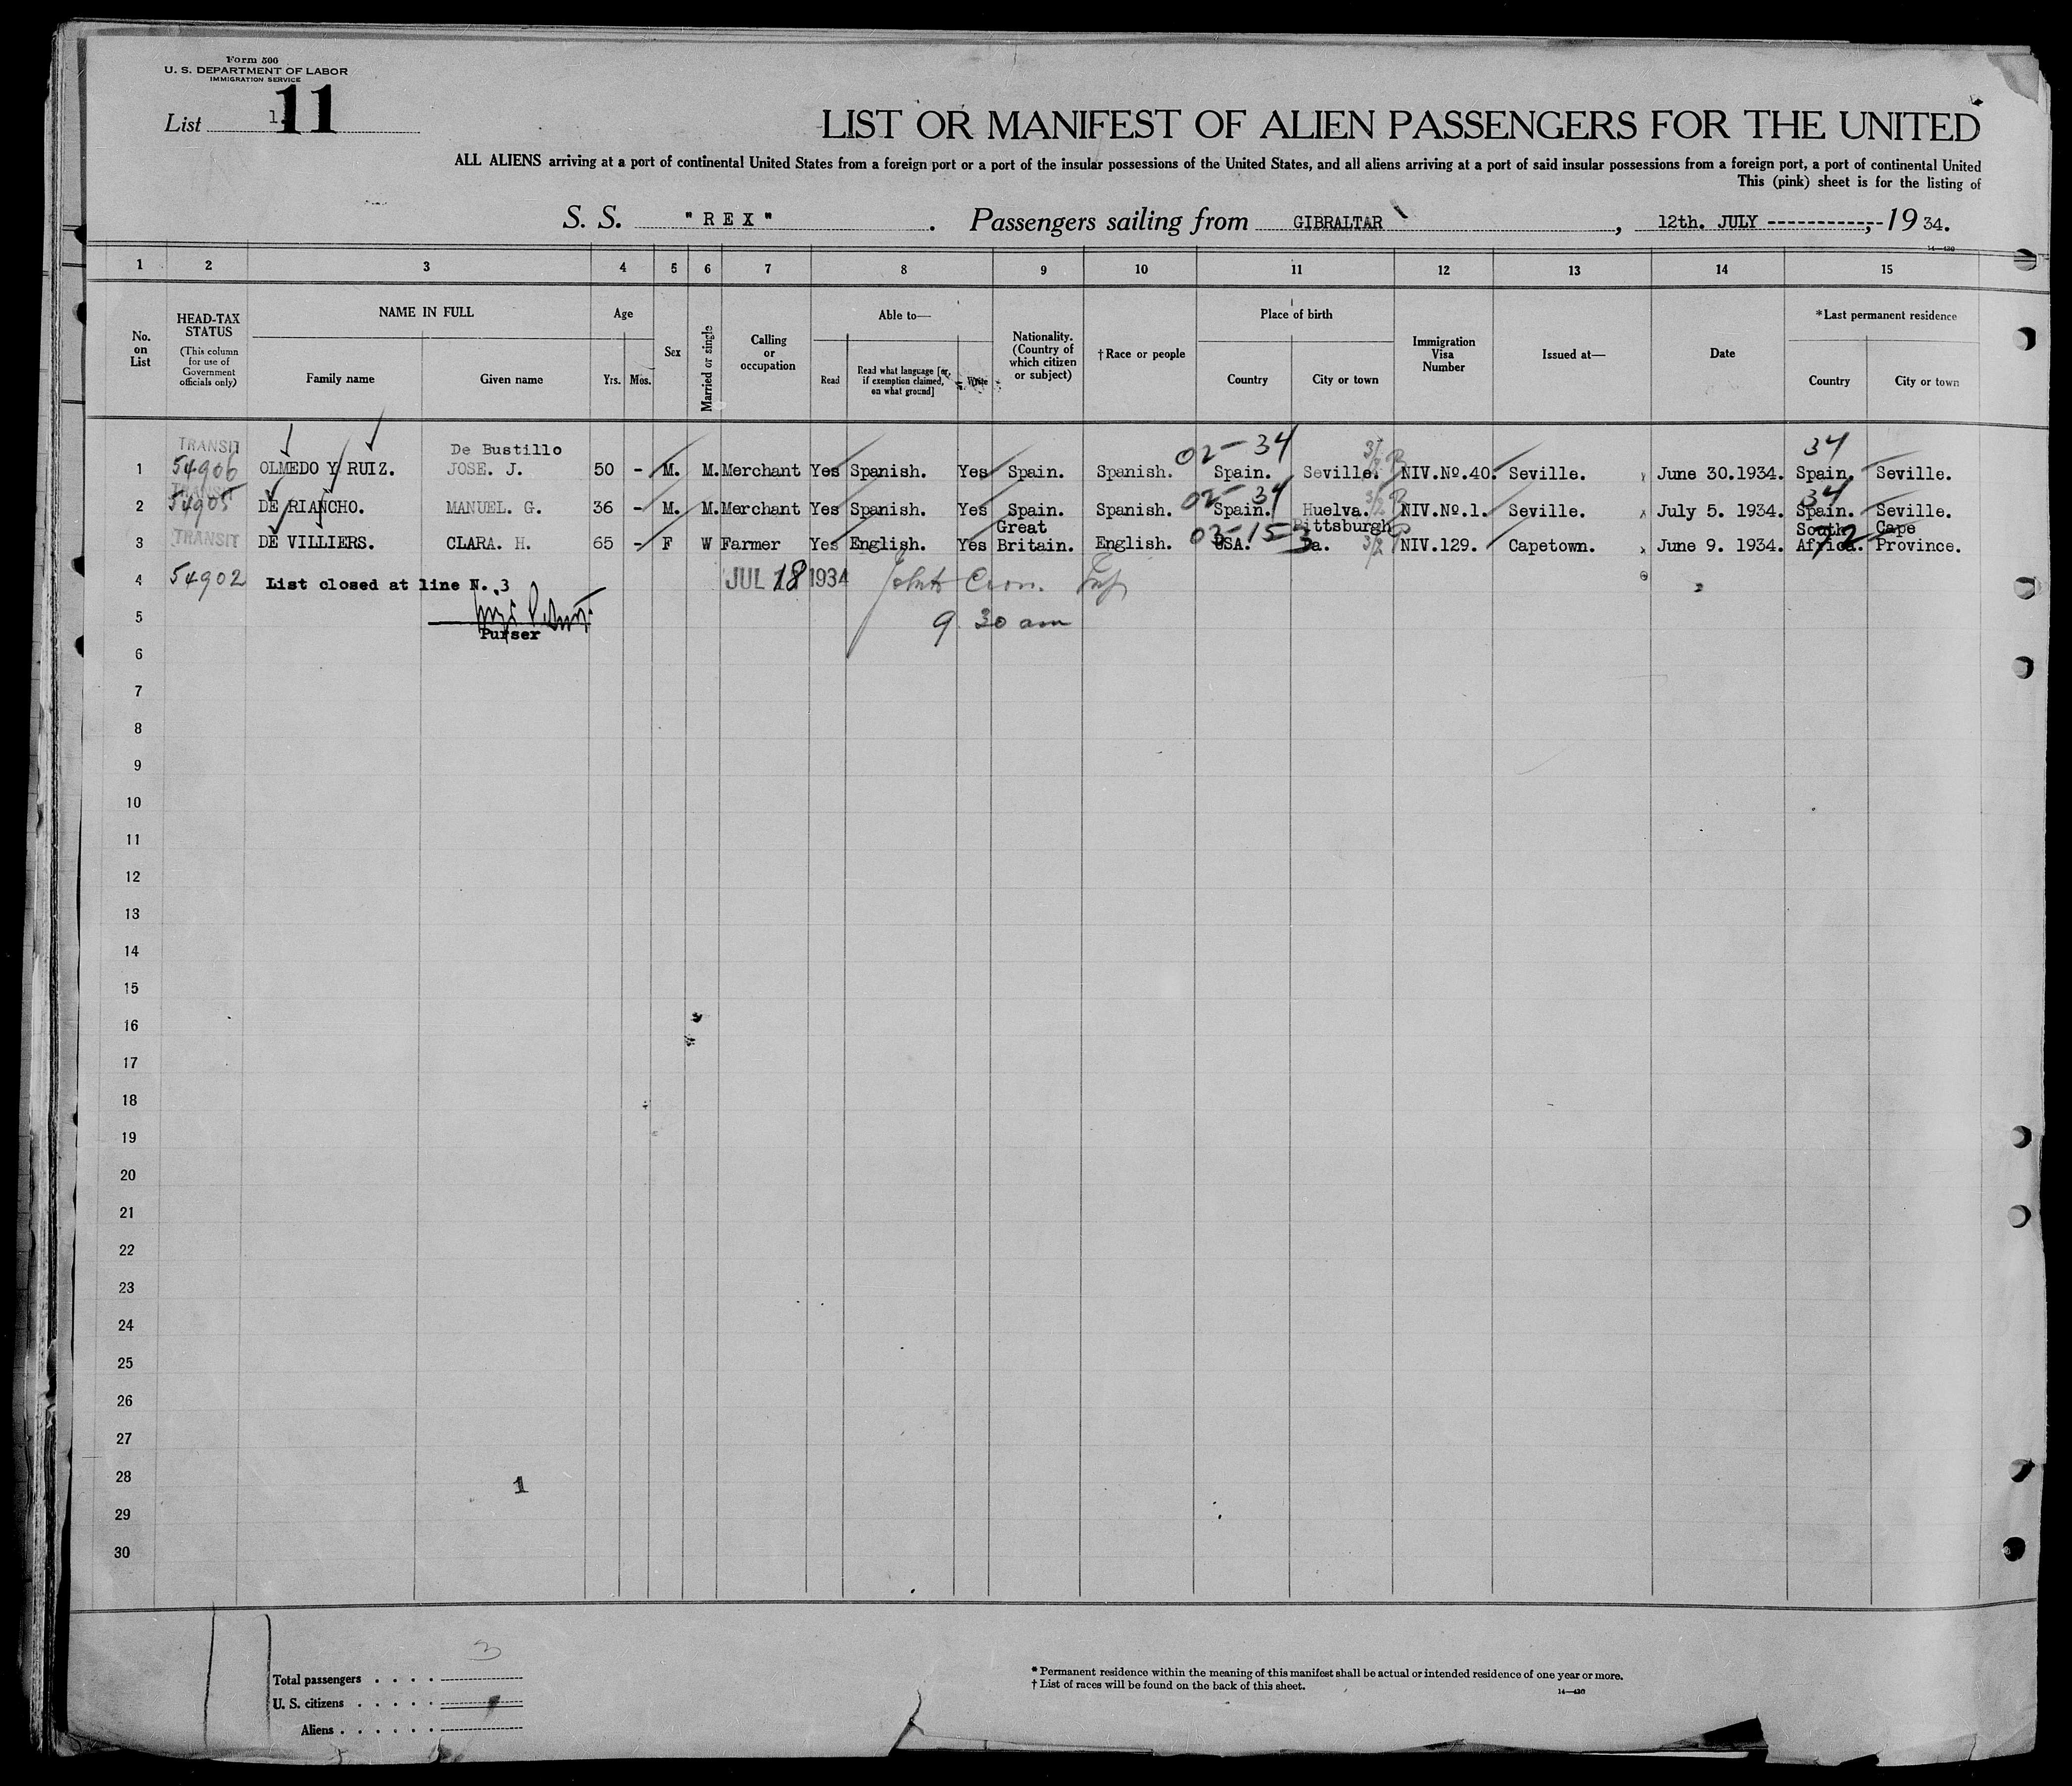 Form 500
U. S. DEPARTMENT OF LABOR
IMMIGRATION SERVICE
List 11
LIST OR MANIFEST OF ALIEN PASSENGERS FOR THE UNITED
ALL ALIENS arriving at a port of continental United States from a foreign port or a port of the insular possessions of the United States, and all aliens arriving at a port of said insular possessions from a foreign port, a port of continental United
This (pink) sheet is for the listing of
S. S. "REX" . Passengers sailing from GIBRALTAR , 12th. JULY ------------, 1934.
14—430
1 2 3 4 5 6 7 8 9 10 11 12 13 14 15
No. on List
HEAD-TAX STATUS
(This column for use of Government officials only)
NAME IN FULL
Family name Given name
Age
Yrs. Mos.
Sex
Married or single
Calling or occupation
Able to—
Read
Read what language [or, if exemption claimed, on what ground]
Write
Nationality. (Country of which citizen or subject)
†Race or people
Place of birth
Country City or town
Immigration Visa Number
Issued at—
Date
*Last permanent residence
Country City or town
TRANSIT De Bustillo 02-34 34
1 54906 OLMEDO Y RUIZ. JOSE. J. 50 - M. M. Merchant Yes Spanish. Yes Spain. Spanish. Spain. Seville. NIV.Nº.40. Seville. June 30.1934. Spain. Seville.
TRANSIT 02-34 34
2 54905 DE RIANCHO. MANUEL. G. 36 - M. M. Merchant Yes Spanish. Yes Spain. Spanish. Spain. Huelva. NIV.Nº.1. Seville. July 5. 1934. Spain. Seville.
Great Pittsburgh South Cape
3 TRANSIT DE VILLIERS. CLARA. H. 65 - F W Farmer Yes English. Yes Britain. English. 03-15-3 USA. Pa. NIV.129. Capetown. June 9. 1934. Africa. 72 Province.
4 54902 List closed at line N. 3 JUL 18 1934
5 9 30 am
Purser
6
7
8
9
10
11
12
13
14
15
16
17
18
19
20
21
22
23
24
25
26
27
28 1
29
30
Total passengers . . . . 3
U. S. citizens . . . . .
Aliens . . . . . .
* Permanent residence within the meaning of this manifest shall be actual or intended residence of one year or more.
† List of races will be found on the back of this sheet.
14—430